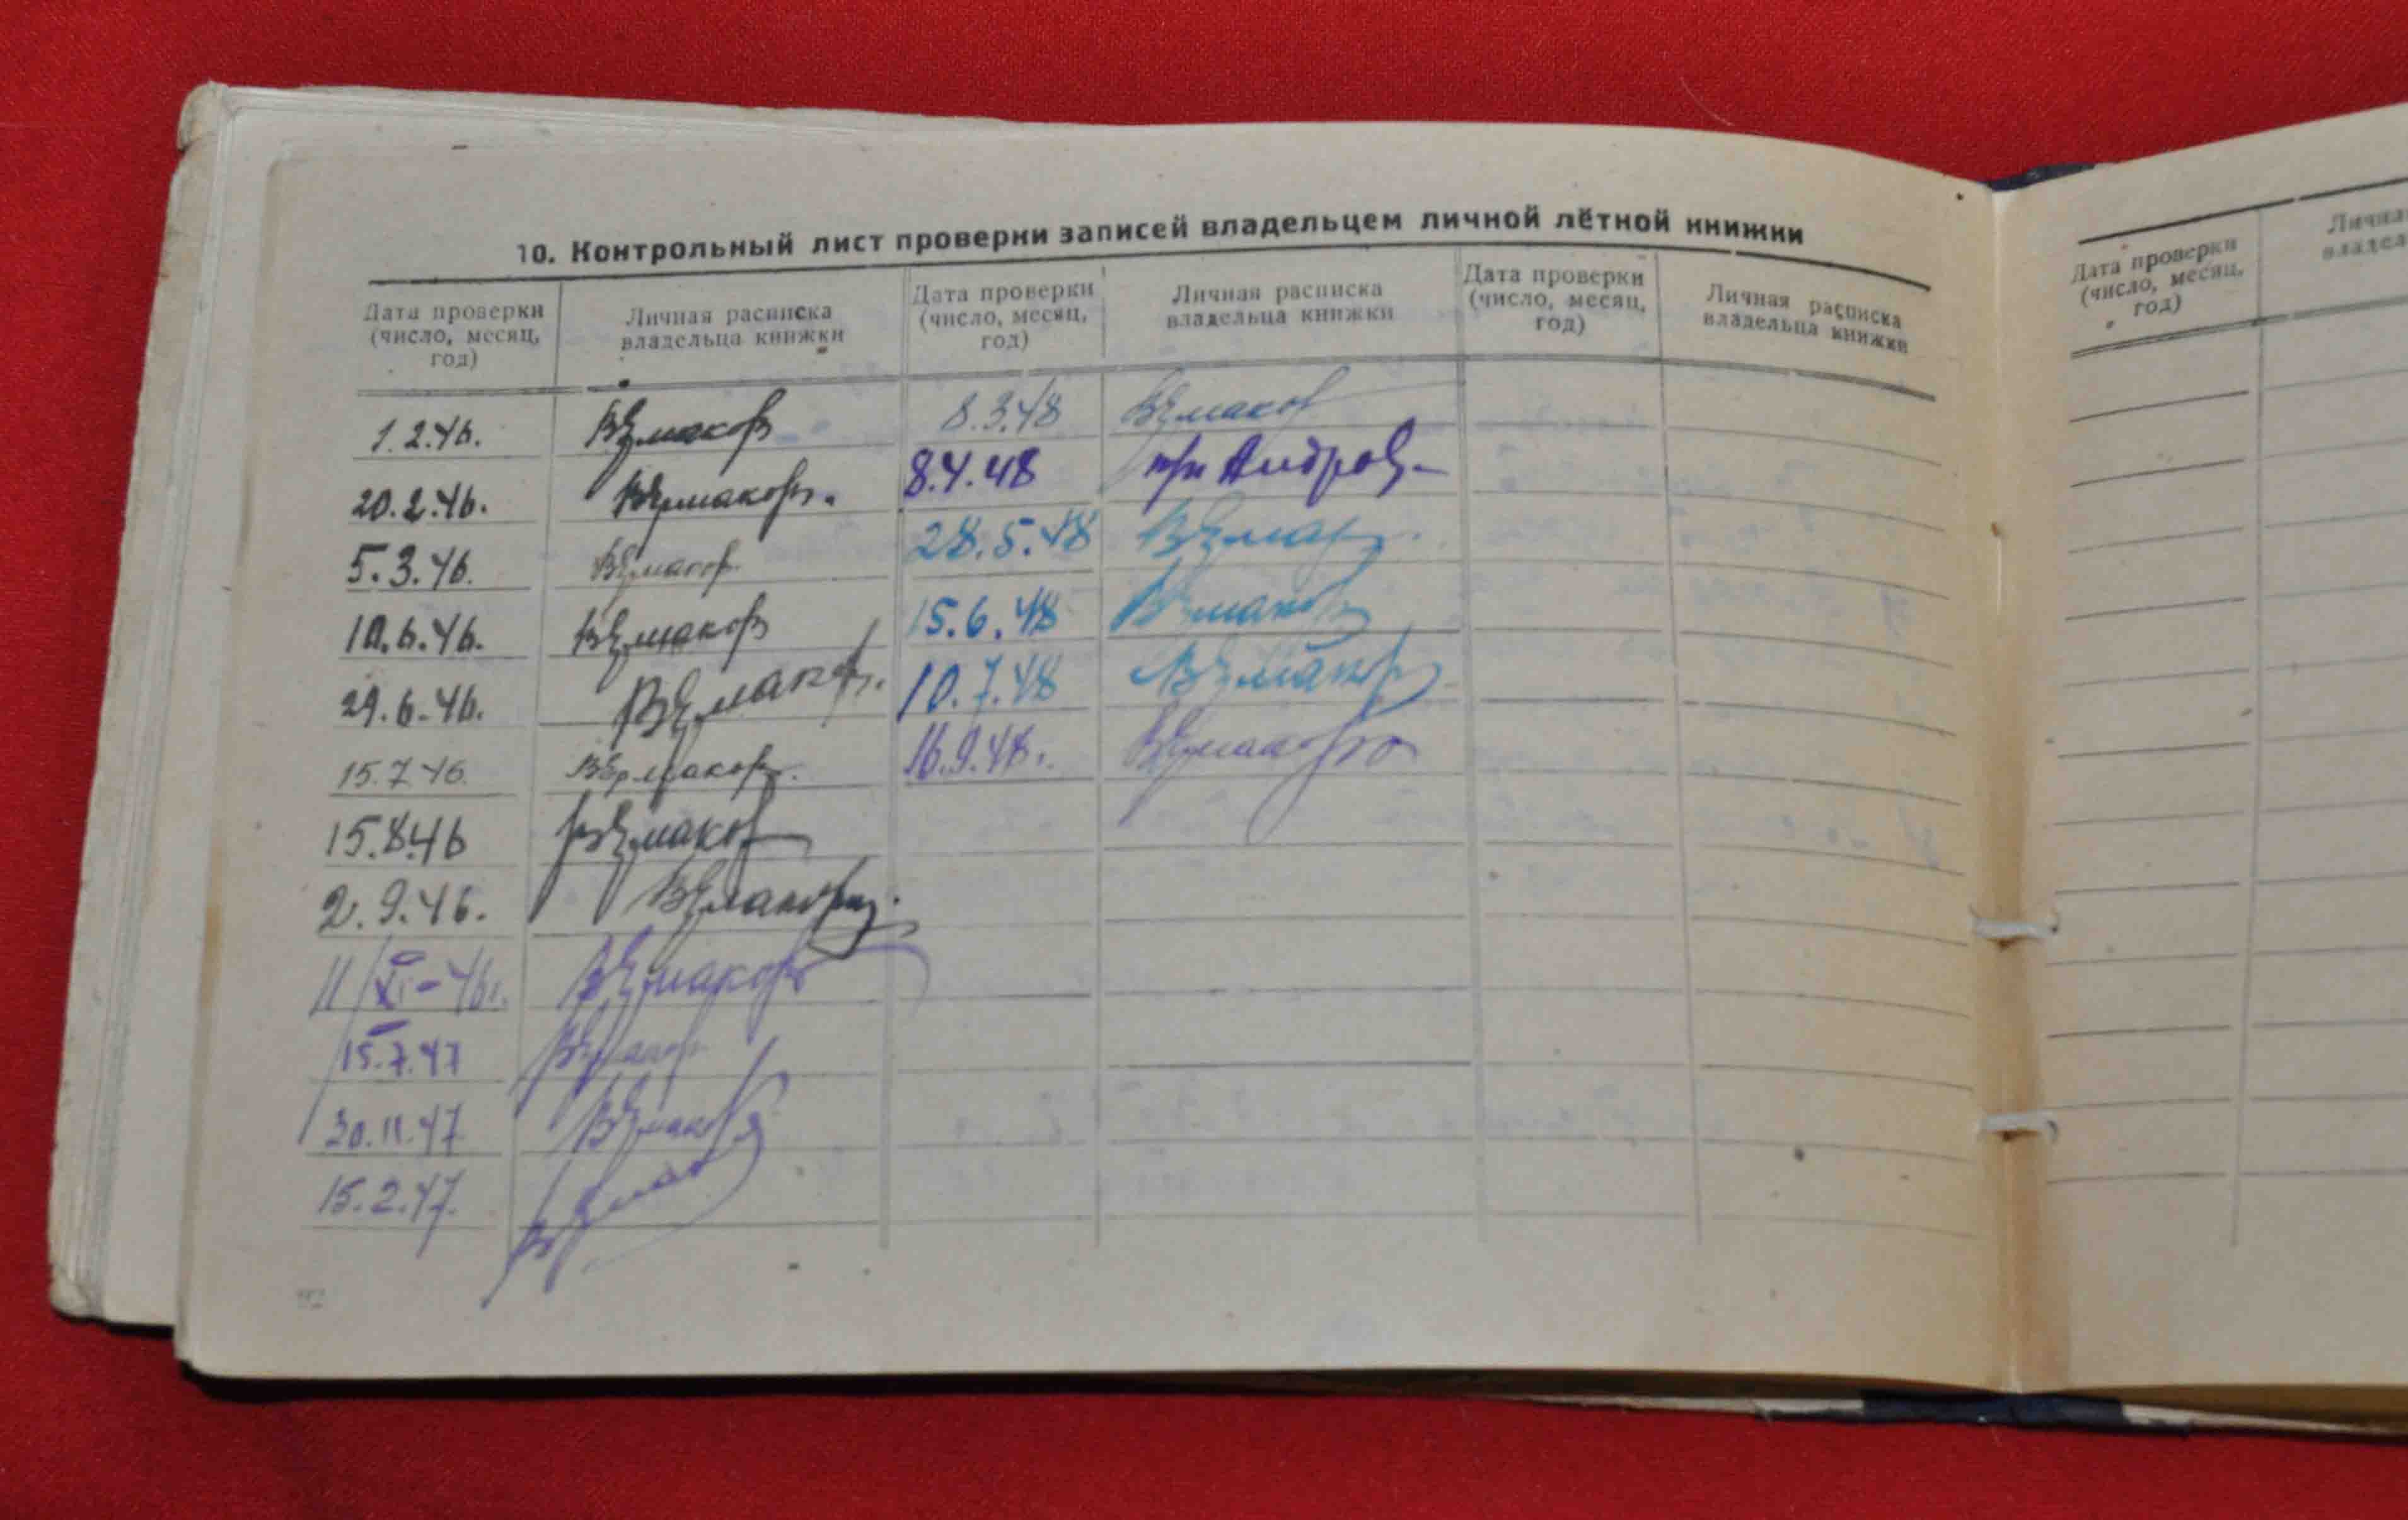 10. Контрольный лист проверки записей владельцем личной лётной книжки
Дата проверки (число, месяц, год) Личная расписка владельца книжки Дата проверки (число, месяц, год) Личная расписка владельца книжки Дата проверки (число, месяц, год) Личная расписка владельца книжки
1.2.46. ВЕрмаков 8.3.48 ВЕрмаков
20.2.46. ВЕрмаков. 8.4.48
5.3.46. ВЕрмаков 28.5.48
10.6.46. ВЕрмаков 15.6.48 ВЕрмаков
29.6.46. ВЕрмаков. 10.7.48 ВЕрмаков
15.7.46. ВЕрмаков. 16.9.48г. ВЕрмаков
15.8.46 ВЕрмаков
2.9.46. ВЕрмаков.
11/XI-46г. ВЕрмаков
15.7.47 ВЕрмаков
30.11.47 ВЕрмаков
15.2.47.
Дата проверки (число, месяц, год)